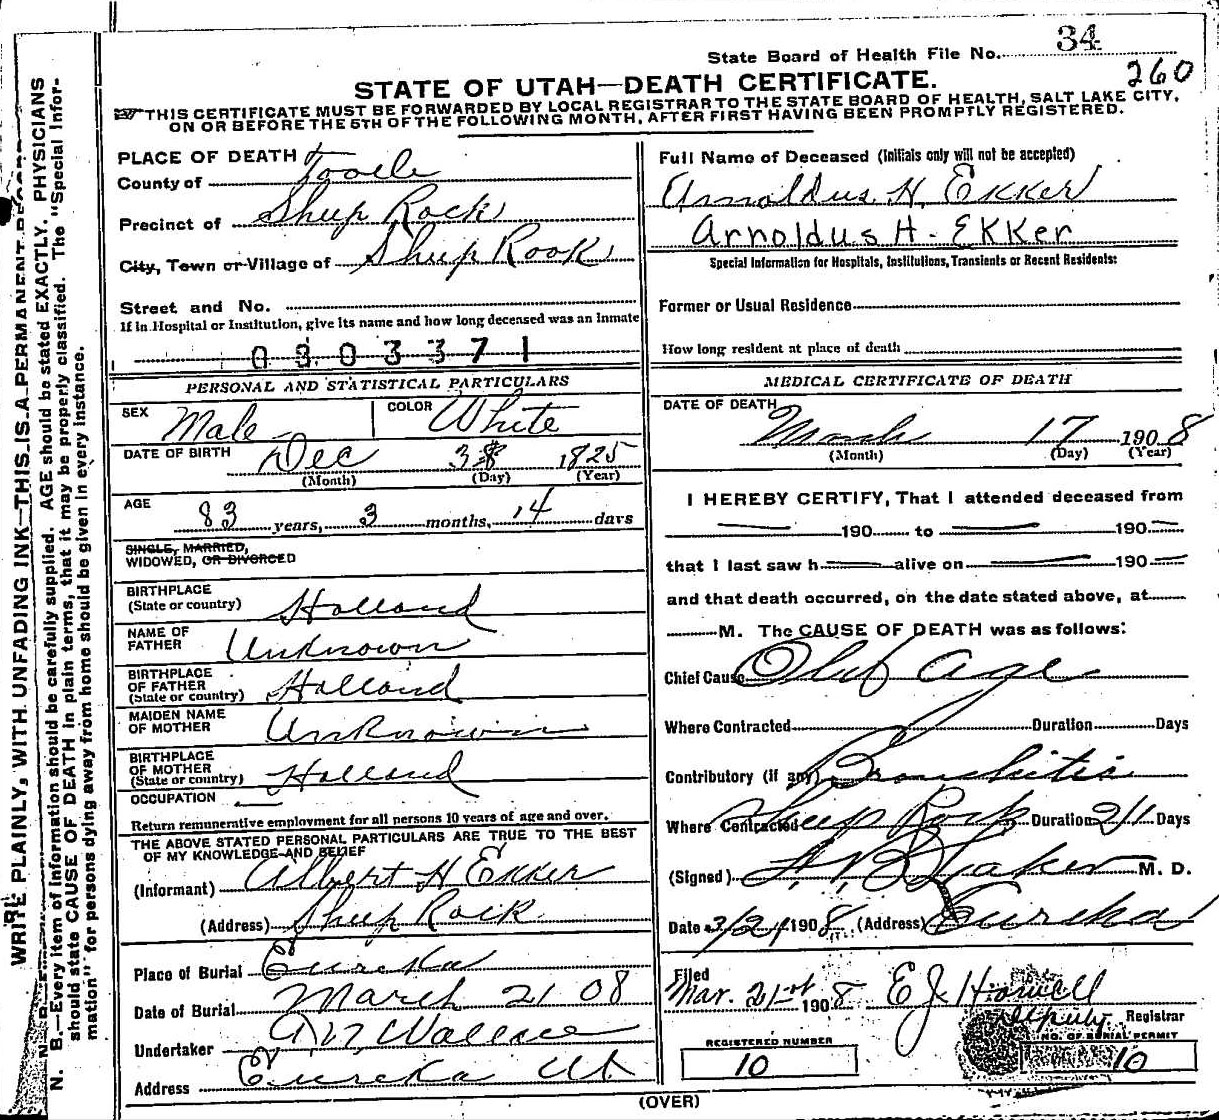 State Board of Health File No. 34
260
STATE OF UTAH—DEATH CERTIFICATE.
THIS CERTIFICATE MUST BE FORWARDED BY LOCAL REGISTRAR TO THE STATE BOARD OF HEALTH, SALT LAKE CITY,
ON OR BEFORE THE 5TH OF THE FOLLOWING MONTH, AFTER FIRST HAVING BEEN PROMPTLY REGISTERED.
PLACE OF DEATH
County of Tooele
Precinct of Sheep Rock
City, Town or Village of Sheep Rock
Street and No.
If in Hospital or Institution, give its name and how long deceased was an Inmate
0 3 0 3 3 7 1
PERSONAL AND STATISTICAL PARTICULARS
SEX Male COLOR White
DATE OF BIRTH Dec 1825
(Month) (Day) (Year)
AGE 83 years, 3 months, 14 days
SINGLE, MARRIED,
WIDOWED, OR DIVORCED
BIRTHPLACE
(State or country) Holland
NAME OF
FATHER Unknown
BIRTHPLACE
OF FATHER
(State or country) Holland
MAIDEN NAME
OF MOTHER Unknown
BIRTHPLACE
OF MOTHER
(State or country) Holland
OCCUPATION
Return remunerative employment for all persons 10 years of age and over.
THE ABOVE STATED PERSONAL PARTICULARS ARE TRUE TO THE BEST
OF MY KNOWLEDGE AND BELIEF
(Informant) Albert H Ekker
(Address) Sheep Rock
Place of Burial Eureka
Date of Burial March 21 08
Undertaker Wallace
Address Eureka Ut
Full Name of Deceased (Initials only will not be accepted)
Arnoldus H. Ekker
Arnoldus H. Ekker
Special Information for Hospitals, Institutions, Transients or Recent Residents:
Former or Usual Residence
How long resident at place of death
MEDICAL CERTIFICATE OF DEATH
DATE OF DEATH
March 17 1908
(Month) (Day) (Year)
I HEREBY CERTIFY, That I attended deceased from
190 to 190
that I last saw h alive on 190
and that death occurred, on the date stated above, at
M. The CAUSE OF DEATH was as follows:
Chief Cause Old Age
Where Contracted Duration Days
Contributory (if any) Bronchitis
Where Contracted Sheep Rock Duration 21 Days
(Signed) M. D.
Date 3/21 1908 (Address) Eureka
Filed
Mar. 21st 1908 E J Howell
Deputy Registrar
REGISTERED NUMBER
10
NO. OF BURIAL PERMIT
10
(OVER)
WRITE PLAINLY, WITH UNFADING INK—THIS IS A PERMANENT RECORD
N. B.—Every item of information should be carefully supplied. AGE should be stated EXACTLY. PHYSICIANS
should state CAUSE OF DEATH in plain terms, that it may be properly classified. The "Special Infor-
mation" for persons dying away from home should be given in every instance.